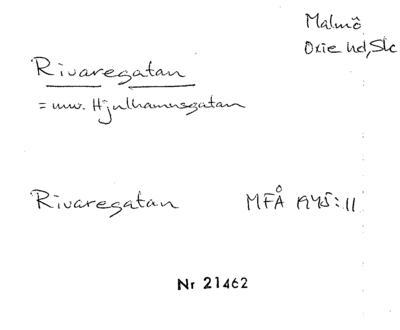 Malmö
Oxie hd, Skc
Rivaregatan
= nuv. Hjulhamnsgatan
Rivaregatan MFÅ 1945:11
Nr 21462